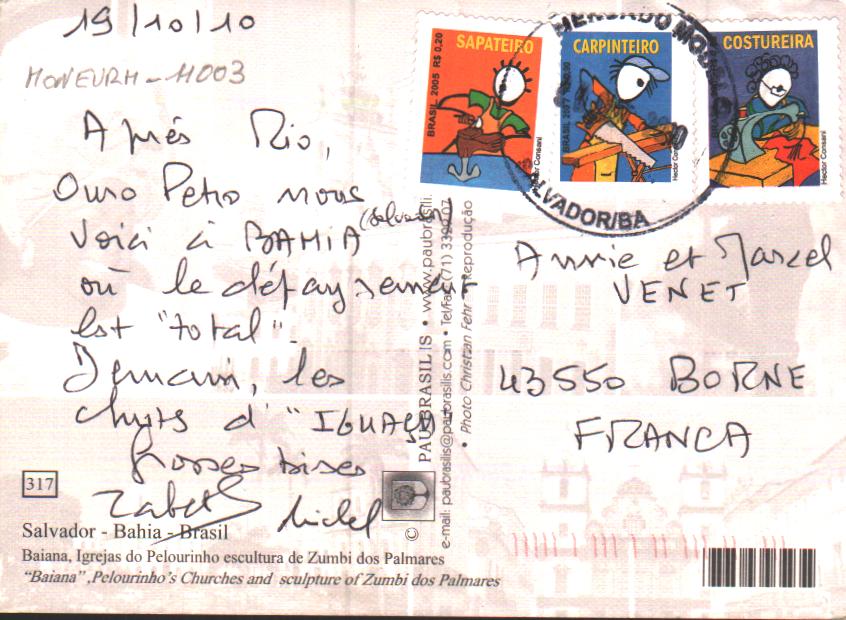 19/10/10
MONEURH-11003
Après Rio,
Ouro Petro nous
voici à BAHIA (Salvador)
où le dépaysement
est "total".
Demain, les
chuts d'"IGUAÇU"
Grosses bises
Michel
SAPATEIRO
BRASIL 2005 R$ 0,20
Hector Consani
CARPINTEIRO
Hector Consani
COSTUREIRA
Hector Consani
MERCADO
SALVADOR/BA
Annie et Marcel
VENET
43550 BORNE
FRANCA
PAUBRASILIS • www.paubrasili.
e-mail: paubrasilis@paubrasilis.com • Tel/Fax (71) 3399.07
• Photo Christian Fehr • Reprodução
©
317
Salvador - Bahia - Brasil
Baiana, Igrejas do Pelourinho escultura de Zumbi dos Palmares
"Baiana", Pelourinho's Churches and sculpture of Zumbi dos Palmares